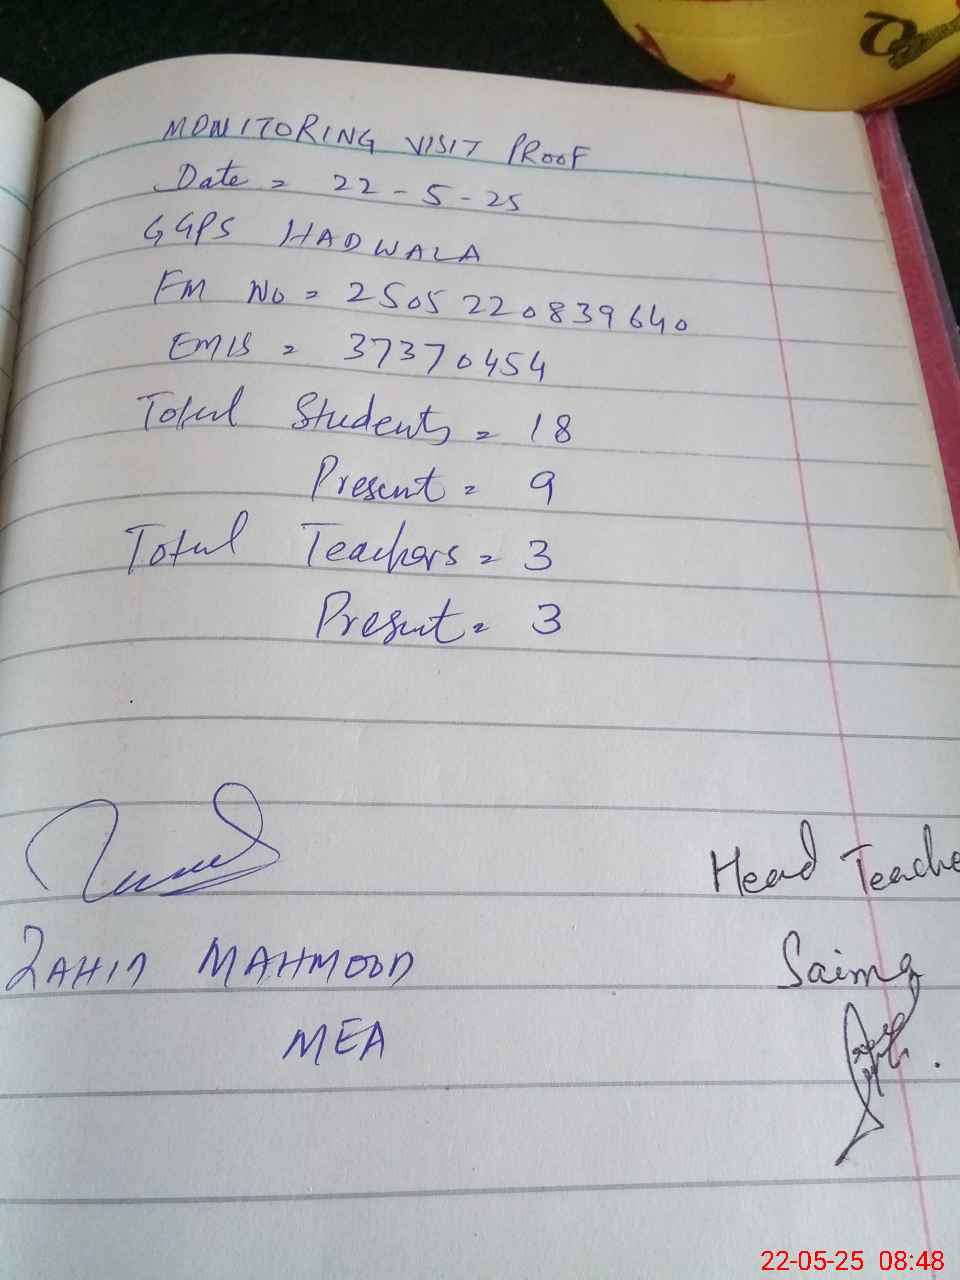 MONITORING VISIT PROOF
Date = 22-5-25
GGPS HADWALA
FM No = 2505220839640
EMIS = 37370454
Total Students = 18
Present = 9
Total Teachers = 3
Present = 3
Head Teache
ZAHID MAHMOOD
Saima
MEA
22-05-25 08:48